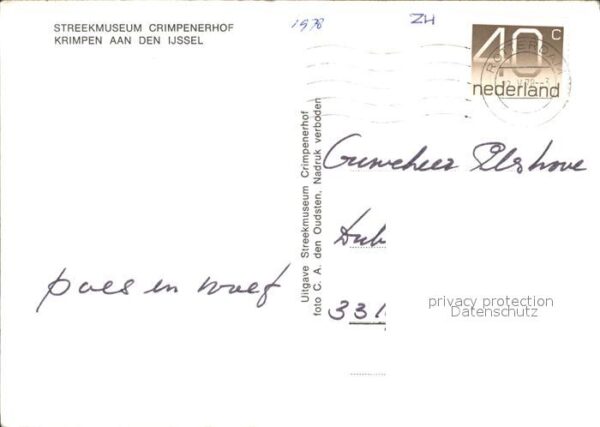 STREEKMUSEUM CRIMPENERHOF
KRIMPEN AAN DEN IJSSEL
1978
ZH
40 c
nederland
ROTTERDAM
Uitgave Streekmuseum Crimpenerhof
foto C. A. den Oudsten, Nadruk verboden
poes en woef
331
privacy protection
Datenschutz